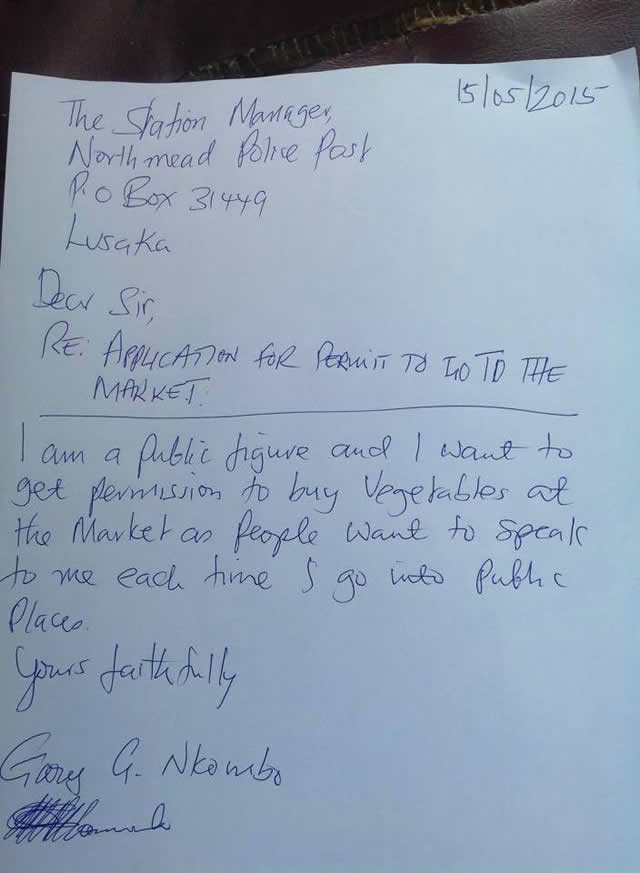 15/05/2015
The Station Manager,
Northmead Police Post
P.O Box 31449
Lusaka
Dear Sir,
RE: APPLICATION FOR PERMIT TO GO TO THE
MARKET.
I am a public figure and I want to
get permission to buy Vegetables at
the Market as People want to speak
to me each time I go into Public
Places.
Yours faithfully
Gary G. Nkombo